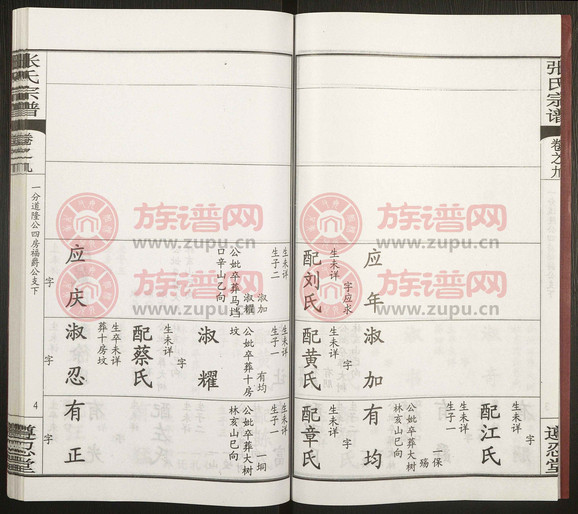 张氏宗谱
卷之九
遁忍堂
应年
字应求
生未详
配刘氏
生未详
生子二
淑加
淑耀
公妣卒葬马垱
口辛山乙向
应庆
字
淑加
字
生未详
配黄氏
生未详
生子一
有均
公妣卒葬十房
坟
淑耀
字
生未详
配蔡氏
生卒未详
葬十房坟
淑忍
字
配江氏
生未详
生未详
生子一
一保
殇
公妣卒葬大树
林亥山巳向
有均
字
生未详
配章氏
生未详
生子一
一坰
公妣卒葬大树
林亥山巳向
有正
字
张氏宗谱
卷之九
一分道隆公四房福爵公支下
4
遁忍堂
族谱网
www.zupu.cn
族谱网
www.zupu.cn
族谱网
www.zupu.cn
族谱网
www.zupu.cn